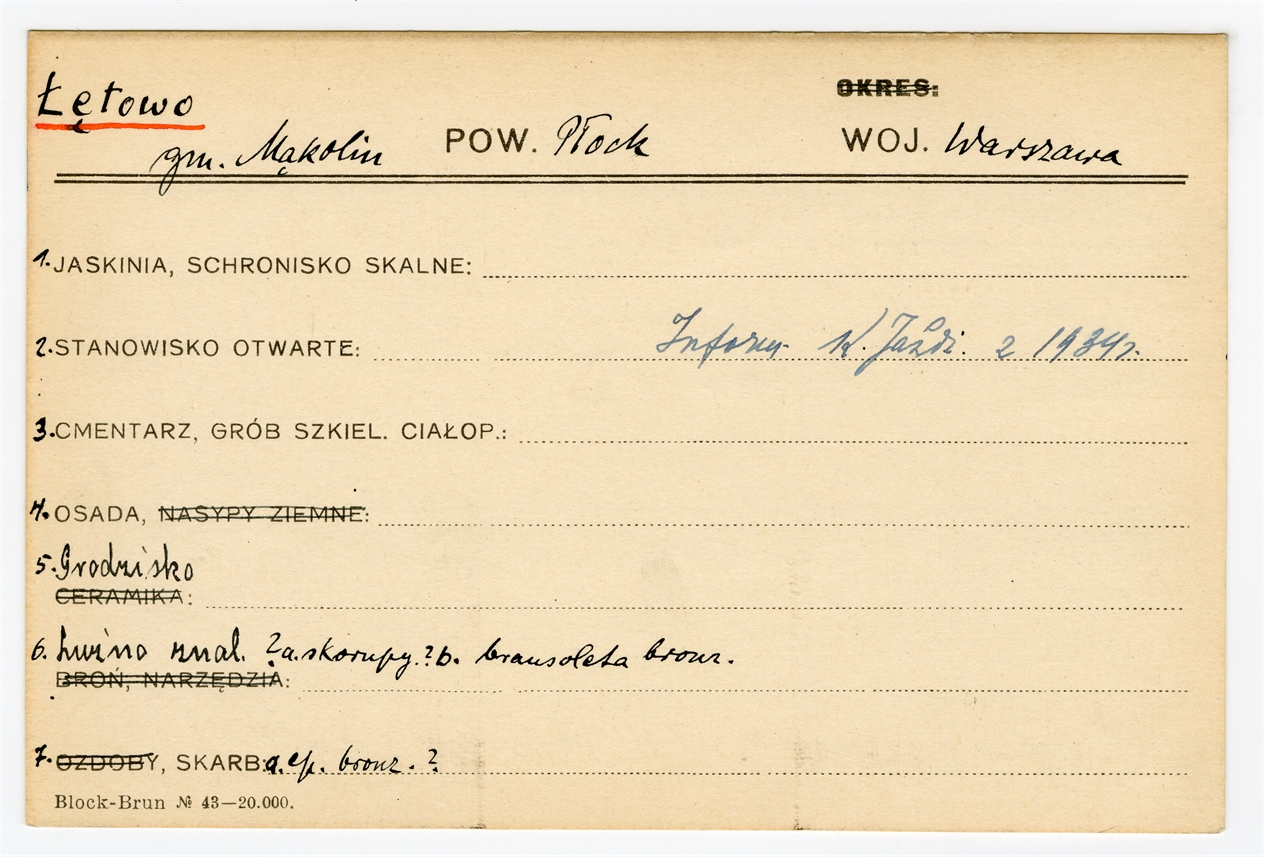 Łętowo
OKRES:
gm. Mąkolin POW. Płock WOJ. Warszawa
1. JASKINIA, SCHRONISKO SKALNE:
2. STANOWISKO OTWARTE: Inform. K. Jażdż. z 1934 r.
3. CMENTARZ, GRÓB SZKIEL. CIAŁOP.:
4. OSADA, NASYPY ZIEMNE:
5. Grodzisko
CERAMIKA:
6. Luźno znal. ? a. skorupy. ? b. bransoleta bronz.
BROŃ, NARZĘDZIA:
7. OZDOBY, SKARB: a. ep. bronz. ?
Block-Brun № 43—20.000.